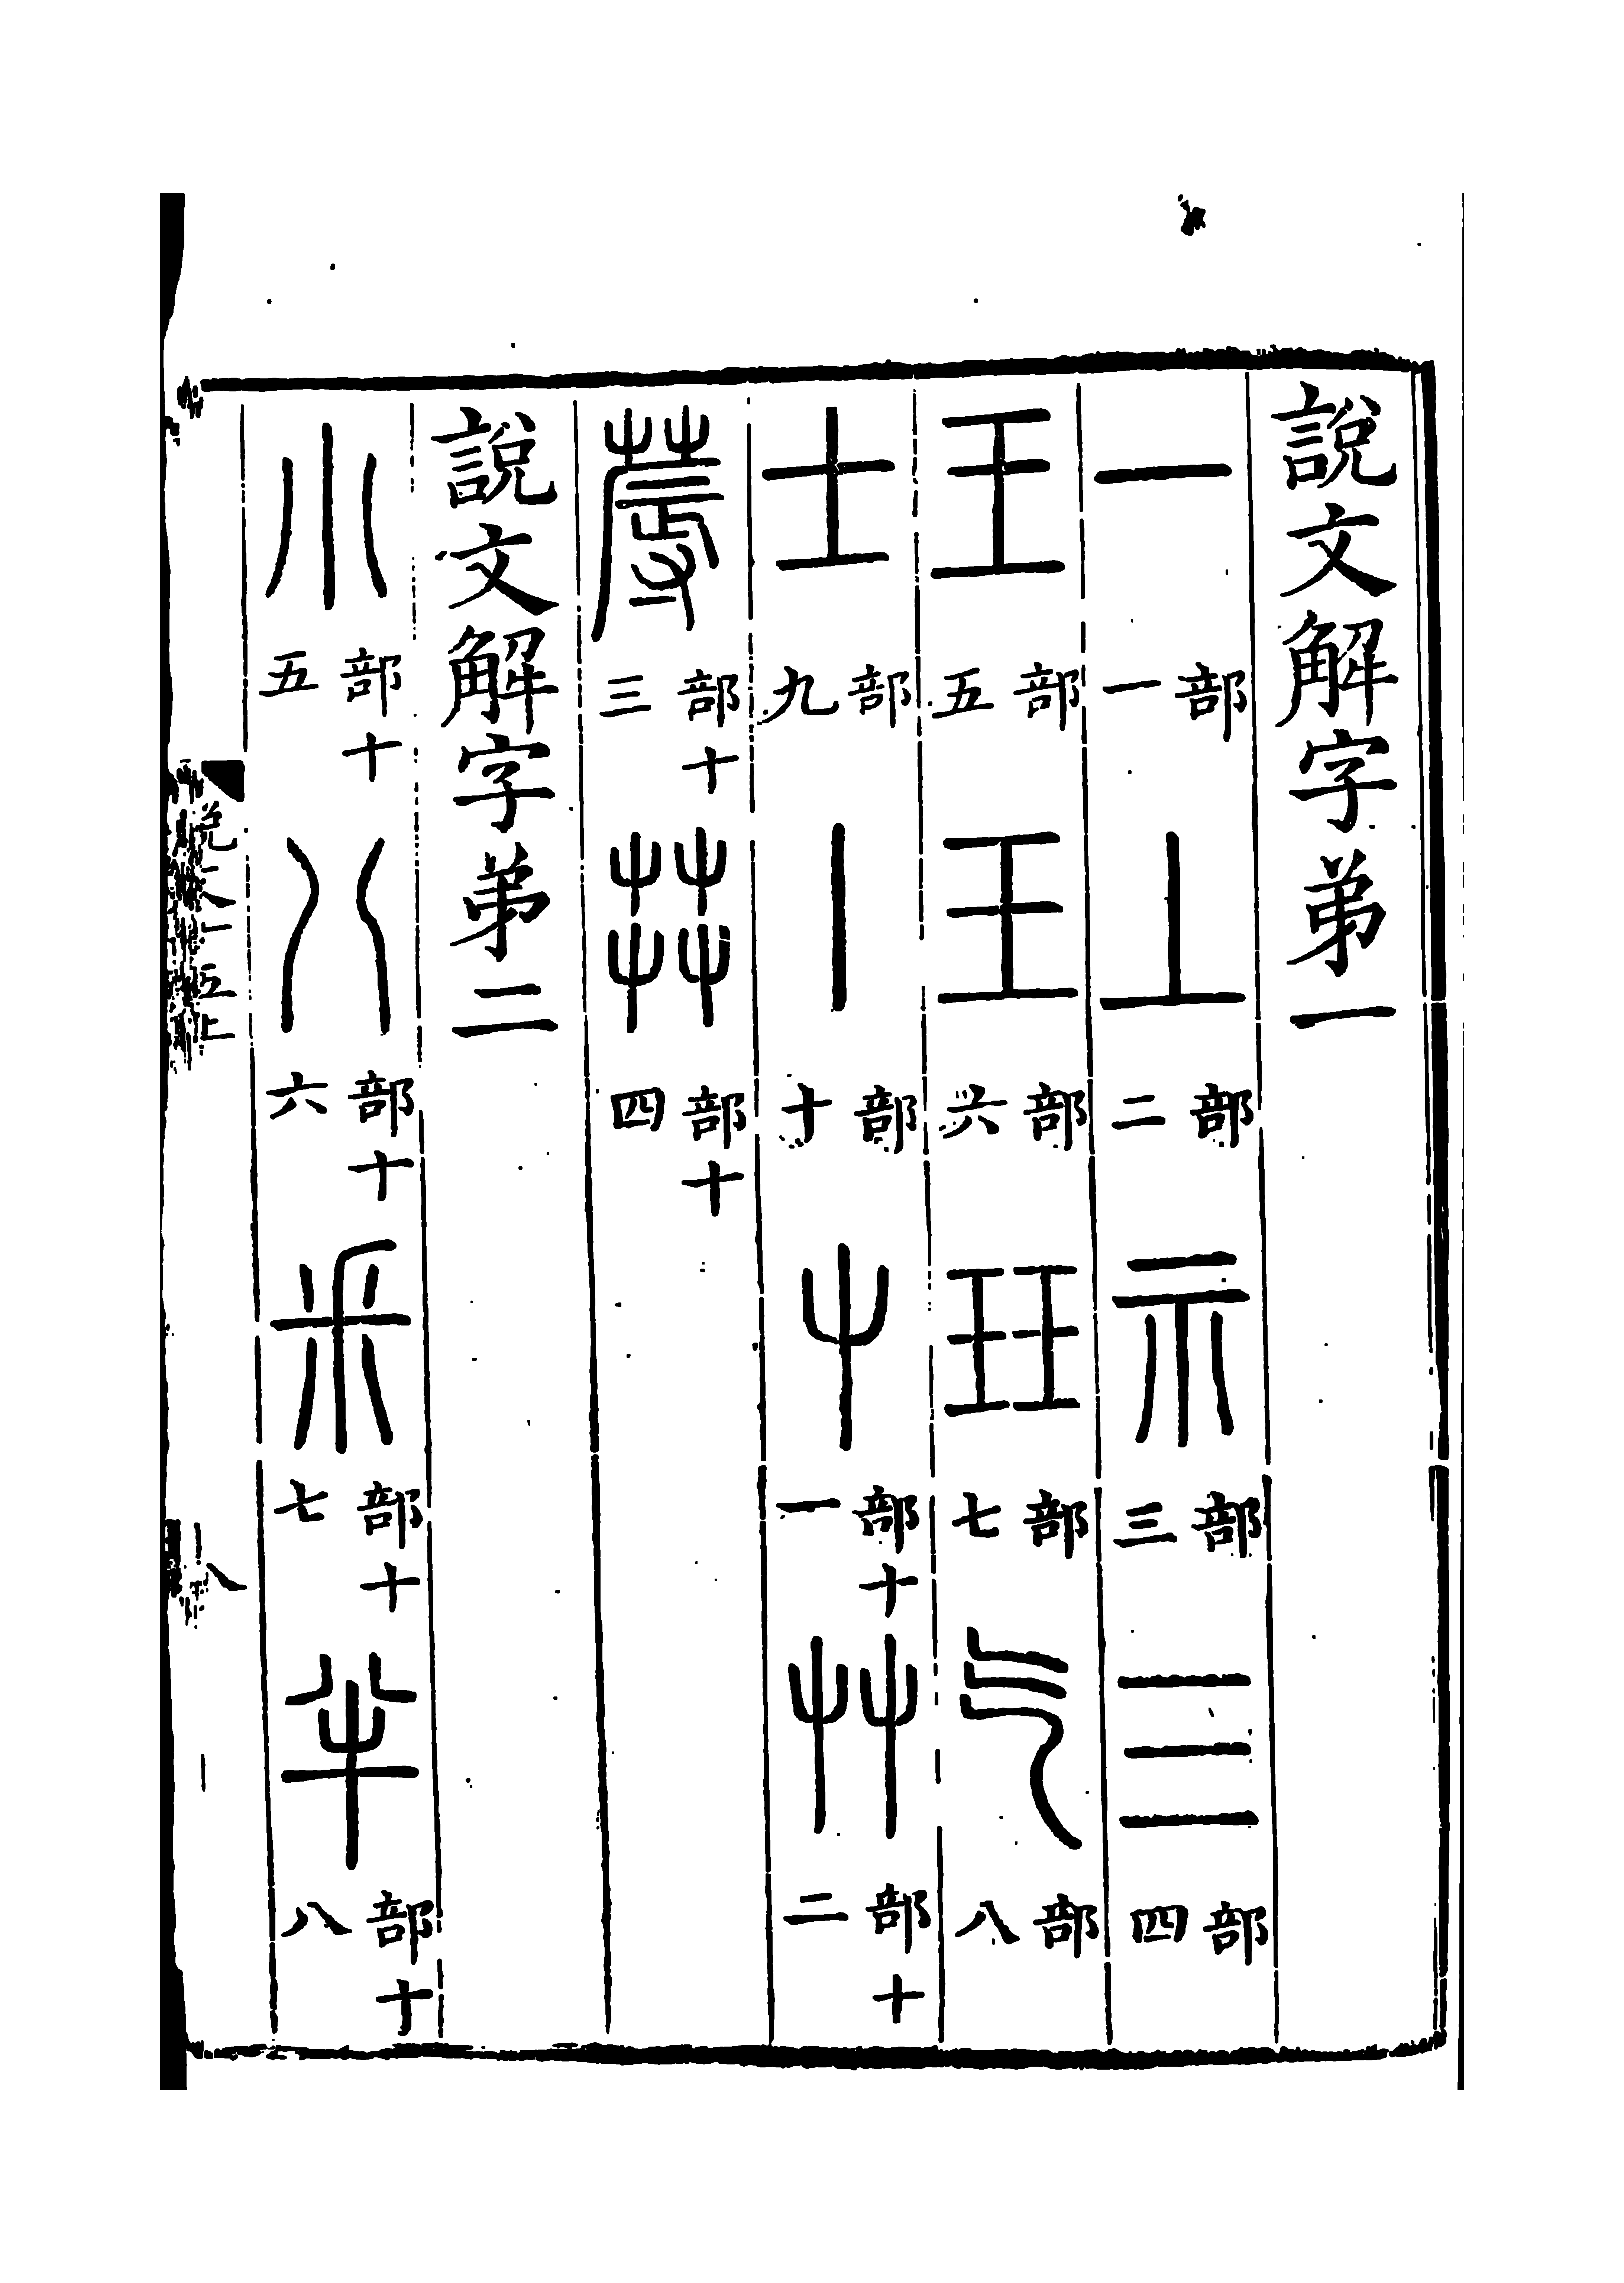 說文解字弟一
一部一丄部二示部三三部四
王部五玉部六玨部七气部八
士部九丨部十屮部十一艸部十二
蓐部十三茻部十四
說文解字弟二
小部十五八部十六釆部十七半部十八